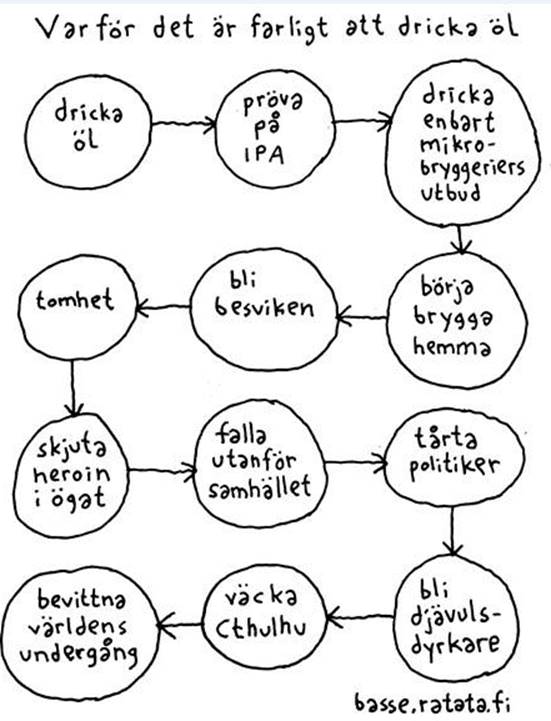 Varför det är farligt att dricka öl
dricka
öl
pröva
på
IPA
dricka
enbart
mikro-
bryggeriers
utbud
börja
brygga
hemma
bli
besviken
tomhet
skjuta
heroin
i ögat
falla
utanför
samhället
tårta
politiker
bli
djävuls-
dyrkare
väcka
Cthulhu
bevittna
världens
undergång
basse.ratata.fi